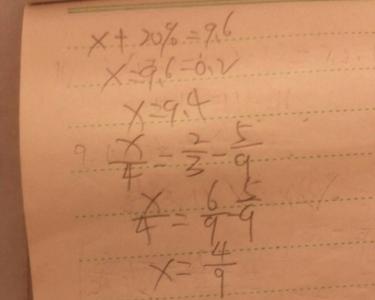 x+20%=9.6
x=9.6=0.2
x=9.4
x/4=2/3-5/9
x/4=6/9-5/9
x=4/9